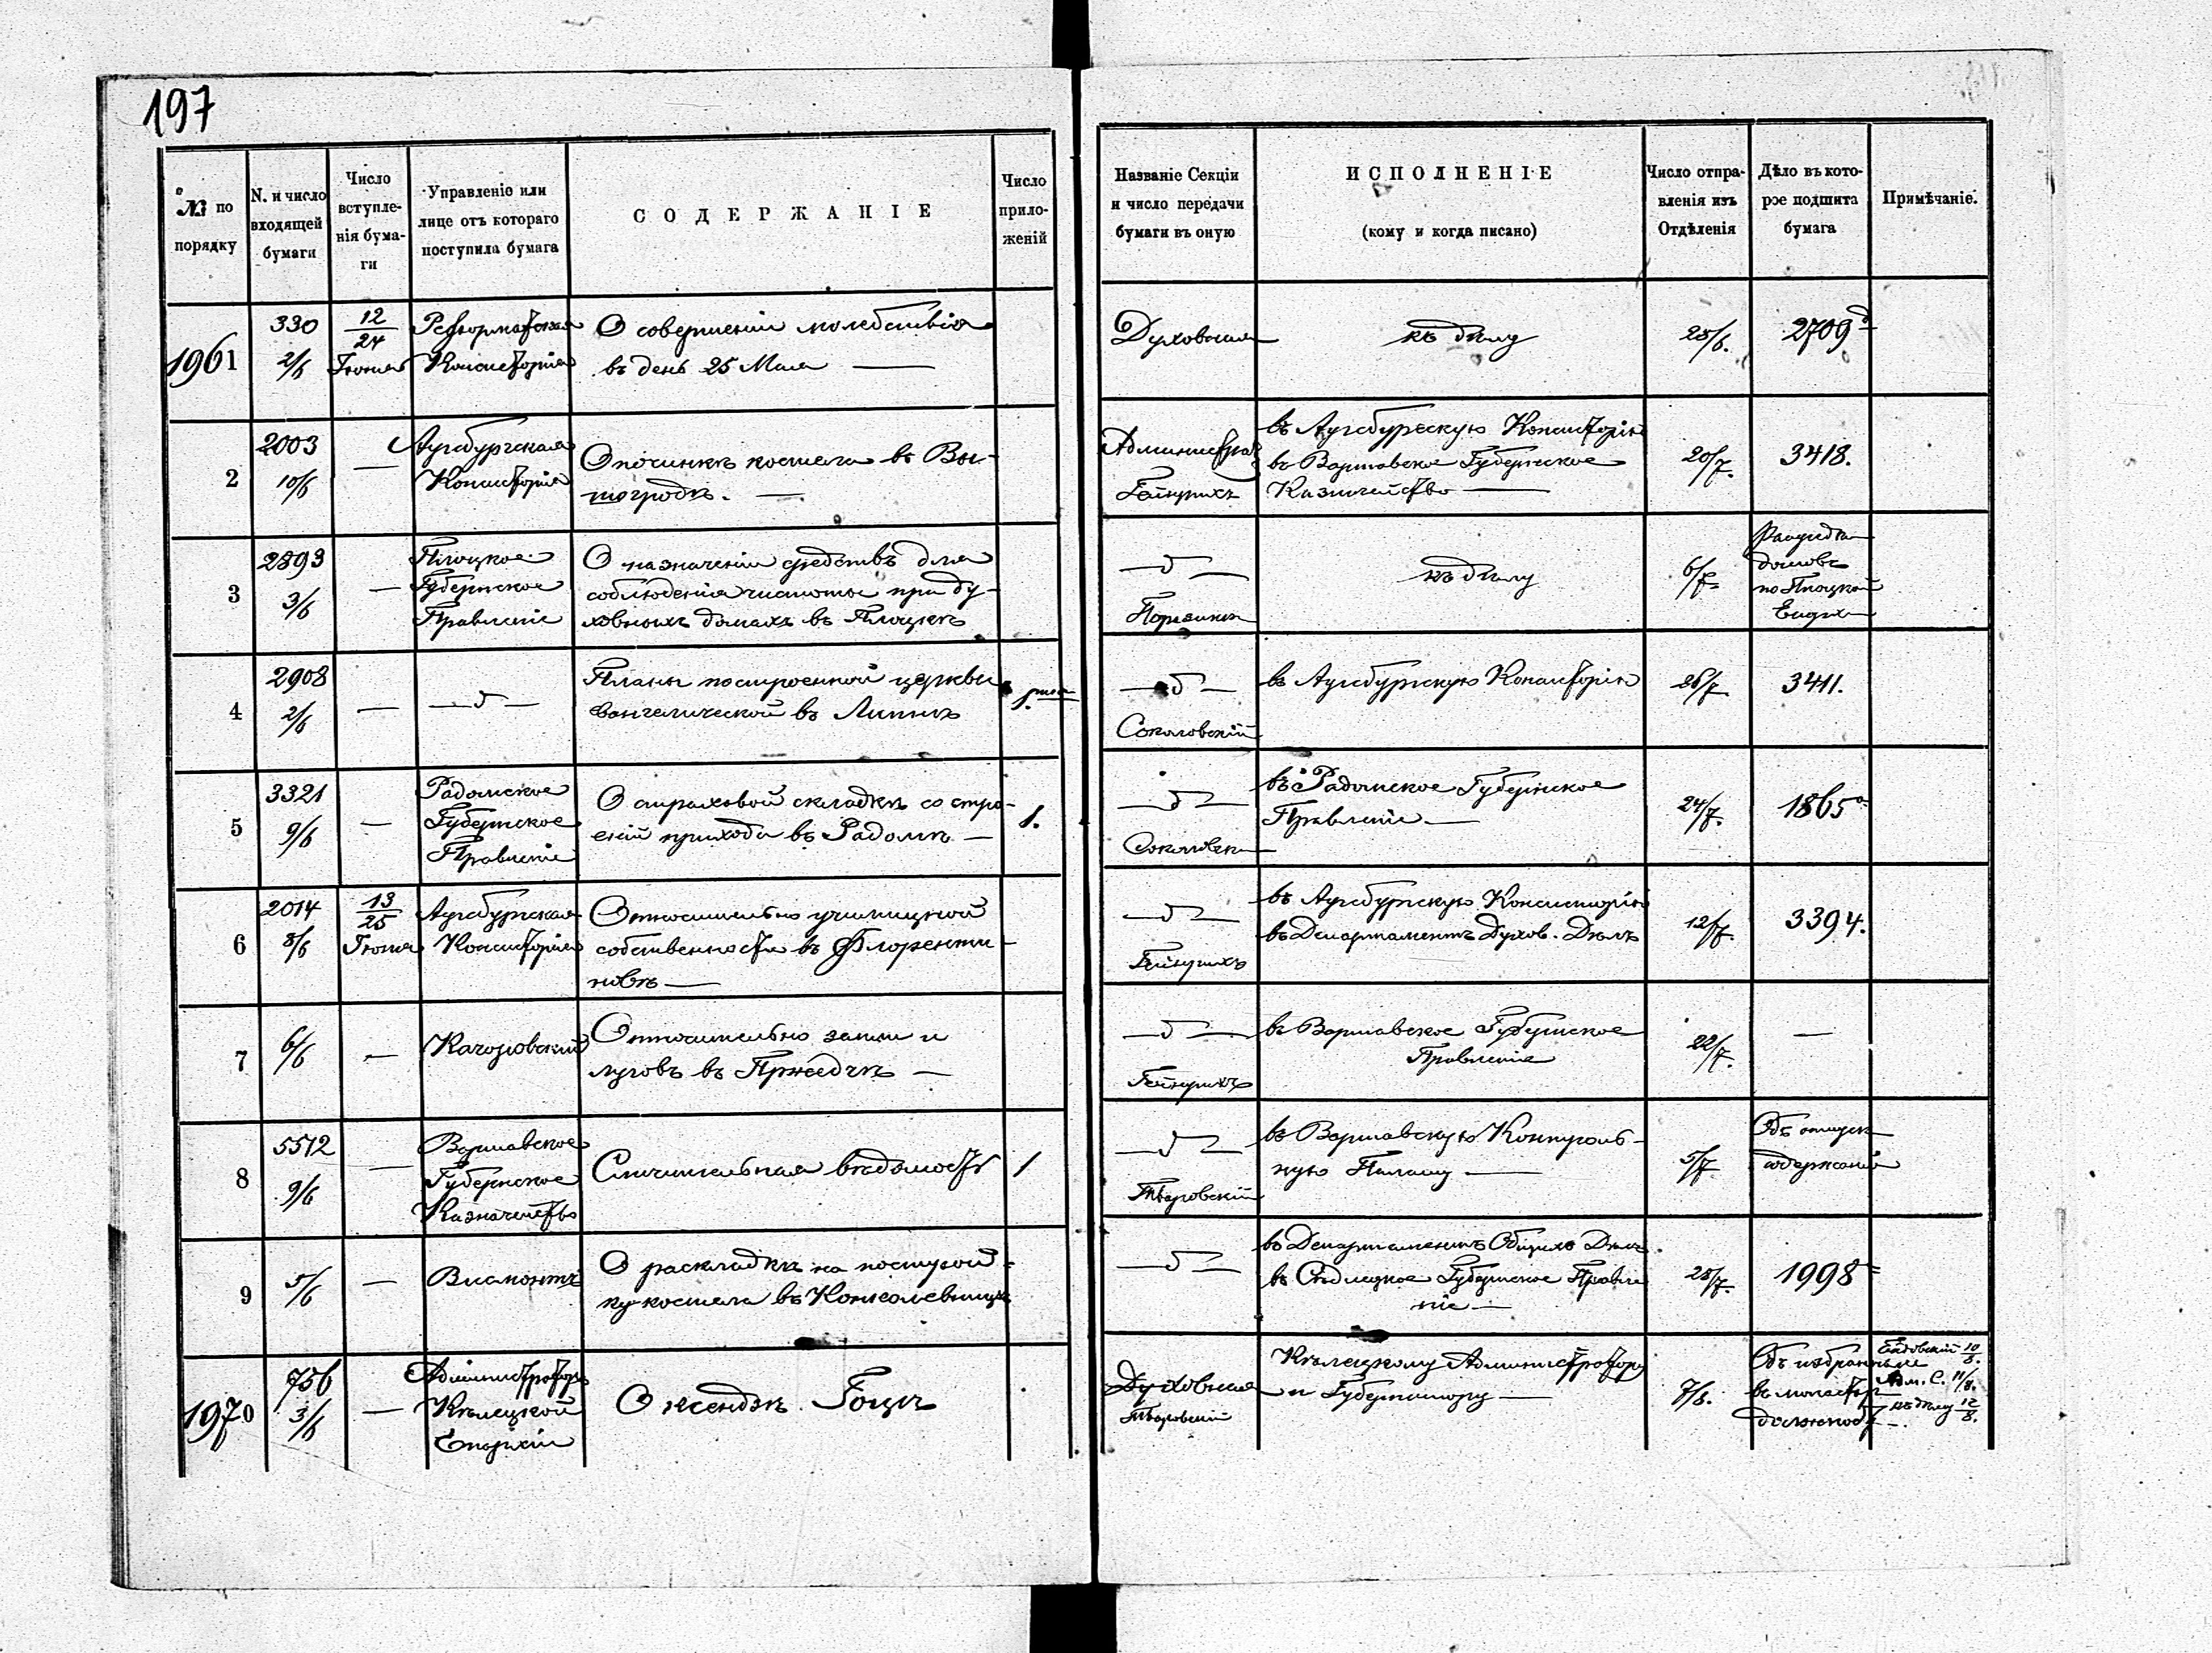 197
№ по порядку
N. и число входящей бумаги
Число вступле-
нія бума-
ги
Управленіе или
лице отъ котораго
поступила бумага
СОДЕРЖАНІЕ
Число
прило-
женій
Названіе Секціи
и число передачи
бумаги въ оную
ИСПОЛНЕНІЕ
(кому и когда писано)
Число отпра-
вленія изъ
Отдѣленія
Дѣло въ кото-
рое подшита
бумага
Примѣчаніе.
1961
330
2/6
12/24
Іюня
Реформатская
Консисторія
О совершеніи молебствія
въ день 25 Мая —
Духовная
къ дѣлу
25/6.
2709
2
2003
10/6
—
Аугсбургская
Консисторія
О починкѣ костела въ Вы-
шогродѣ. —
Гейнрихъ
въ Аугсбургскую Консисторію
въ Варшавское Губернское
Казначейство —
20/7.
3418.
3
2893
3/6
—
Плоцкое
Губернское
Правленіе
О назначеніи средствъ для
соблюденія чистоты при ду-
ховныхъ домахъ въ Плоцкѣ
къ дѣлу
6/7
домовъ
по Плоцкой
Епарх
4
2908
2/6
—
Планы построенной церкви
евангелической въ Липнѣ
1.
Соколовскій
въ Аугсбургскую Консисторію
26/7
3411.
5
3321
9/6
—
Радомское
Губернское
Правленіе
О страховой складкѣ со стро-
еній прихода въ Радомѣ —
1.
въ Радомское Губернское
Правленіе —
24/7.
1865
6
2014
8/6
13/25
Іюня
Аугсбургская
Консисторія
Относительно училищной
собственности въ Флоренти-
новѣ —
Гейнрихъ
въ Аугсбургскую Консисторію
въ Департаментъ Духов. Дѣлъ
12/7.
3394.
7
6/6
—
Относительно земли и
луговъ въ Пржедчѣ —
Гейнрихъ
въ Варшавское Губернское
Правленіе
22/7.
—
8
5512
9/6
—
Варшавское
Губернское
Казначейство
Сличительная вѣдомость
1
въ Варшавскую Контроль-
ную Палату —
5/7
Объ отпускѣ
содержанія
9
5/6
—
Висмонтъ
О раскладкѣ на построй-
ку костела въ
въ Департаментъ Общихъ Дѣлъ
въ Сѣдлецкое Губернское Правле
ніе —
25/7.
1998
1970
756
3/6
—
Администраторъ
Кѣлецкой
Епархіи
О ксендзѣ Гоцъ
Духовная
Кѣлецкому Администратору
и Губернатору —
7/8.
Объ избраніи
въ монастыр
должност
10/8.
Адм. С. 11/8.
къ дѣлу 12/8.